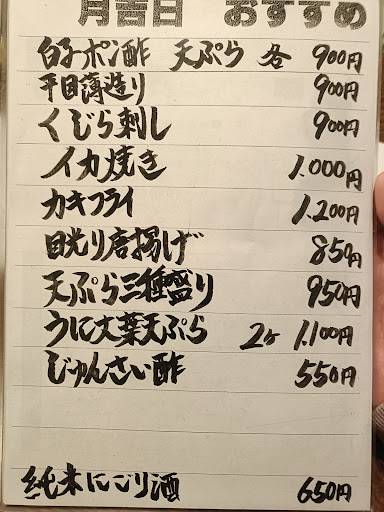 月吉日 おすすめ
白子ポン酢 天ぷら 各 900円
平目薄造り 900円
くじら刺し 900円
イカ焼き 1.000円
カキフライ 1.200円
目光り唐揚げ 850円
天ぷら三種盛り 950円
うに大葉天ぷら 2ヶ 1.100円
じゅんさい酢 550円
純米にごり酒 650円